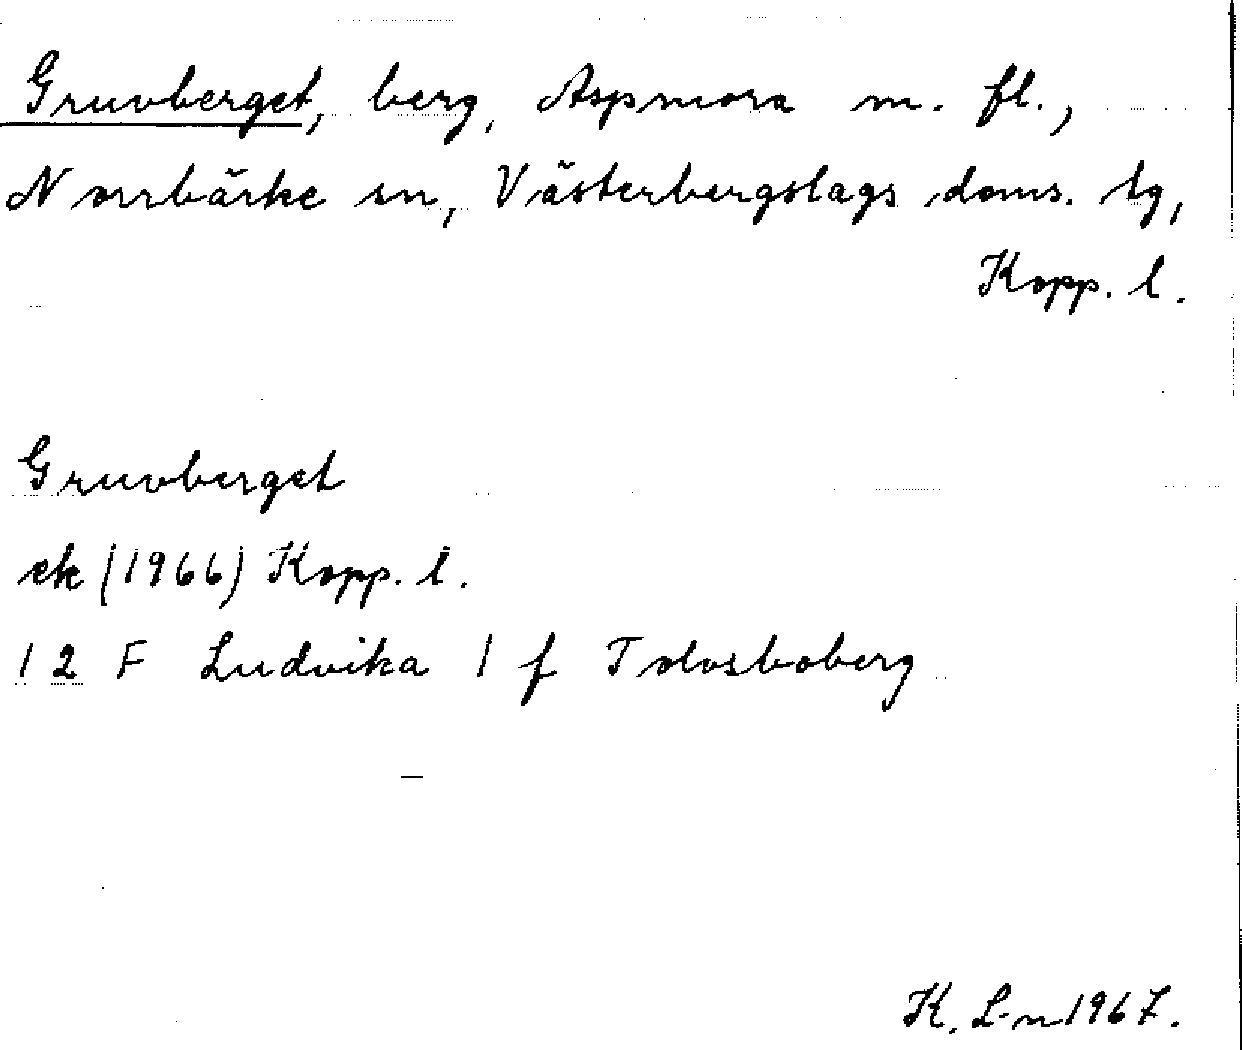 Gruvberget, berg, Aspmora m. fl.,
Norrbärke sn, Västerbergslags doms. tg,
Kopp. l.
Gruvberget
ek (1966) Kopp. l.
12 F Ludvika 1 f Tolvsboberg
K. L-n 1967.